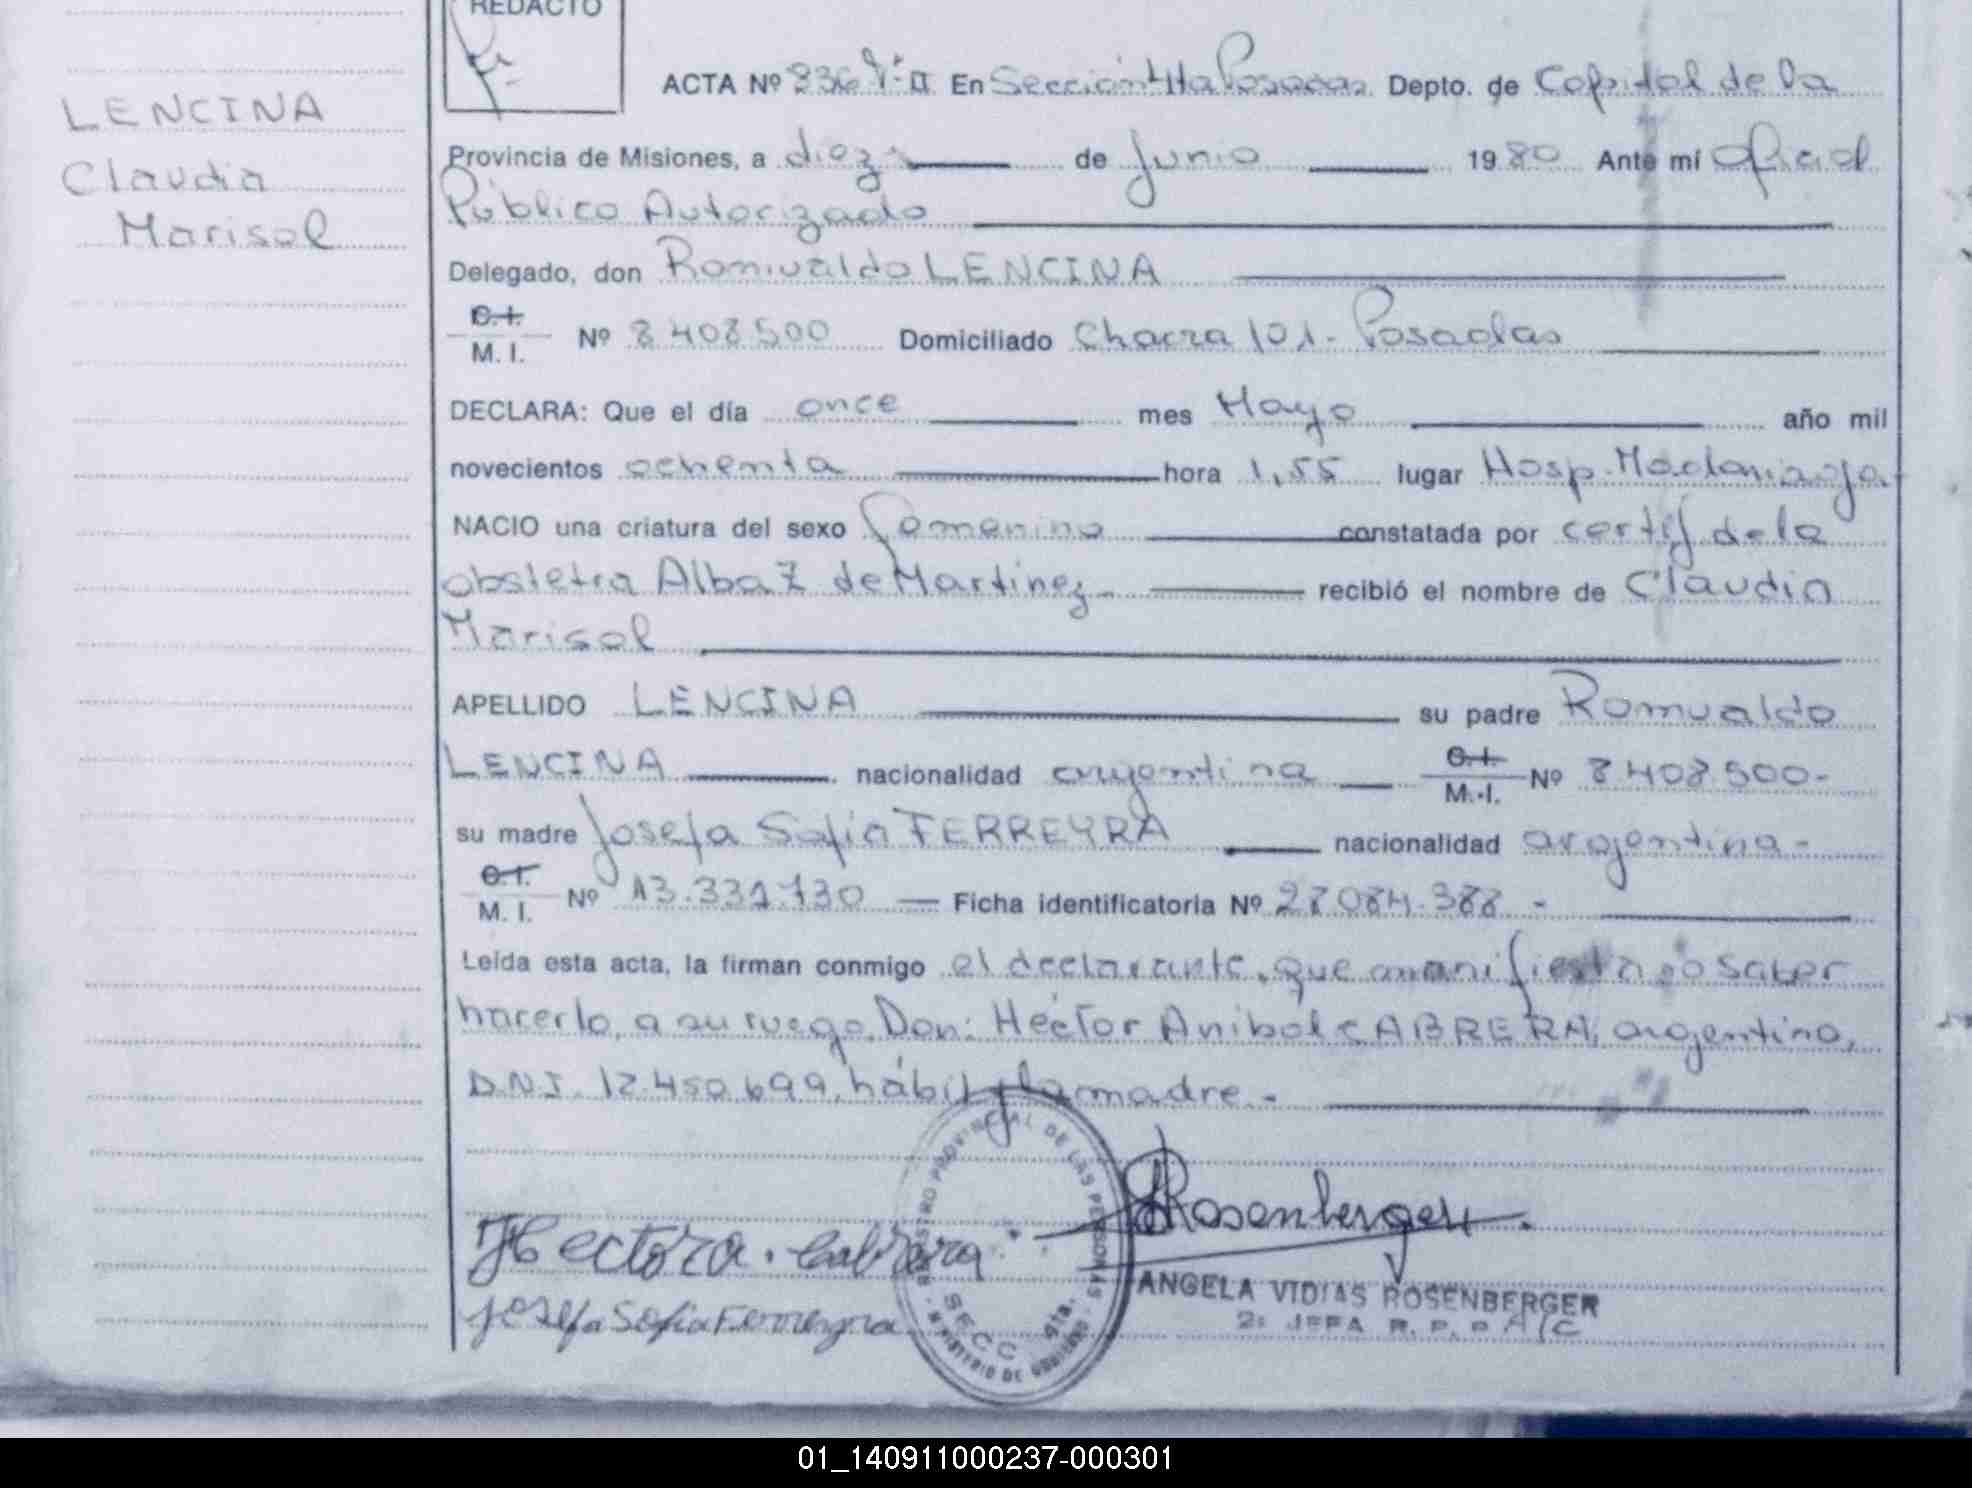 REDACTO
LENCINA
Claudia
Marisol
ACTA Nº 836 Tº II En Sección 4ta Posadas Depto. de Capital de la
Provincia de Misiones, a diez de Junio 1980 Ante mí Oficial
Público Autorizado
Delegado, don Romualdo LENCINA
C.I. M. I. Nº 8408500 Domiciliado Chacra 101- Posadas
DECLARA: Que el día once mes Mayo año mil
novecientos ochenta hora 1,55 lugar Hosp. Madariaga
NACIO una criatura del sexo femenino constatada por certif de la
obstetra Alba Z de Martinez- recibió el nombre de Claudia
Marisol
APELLIDO LENCINA su padre Romualdo
LENCINA nacionalidad argentina C.I. M.I. Nº 8408500-
su madre Josefa Sofia FERREYRA nacionalidad argentina-
C.I. M. I. Nº 13.331.730 Ficha identificatoria Nº 28.084.388 -
Leída esta acta, la firman conmigo el declarante, que manifiesta no saber
hacerlo, a su ruego Don: Héctor Anibal CABRERA, argentino,
D.N.I. 12.450.699, hábil y la madre.-
REGISTRO PROVINCIAL DE LAS PERSONAS
SECC 4ta.
MINISTERIO DE GOBIERNO
Rosenberger
Hector A. Cabrera
Josefa Sofia Ferreyra
ANGELA VIDIAS ROSENBERGER
2º JEFA R. P. P. A/C
01_140911000237-000301